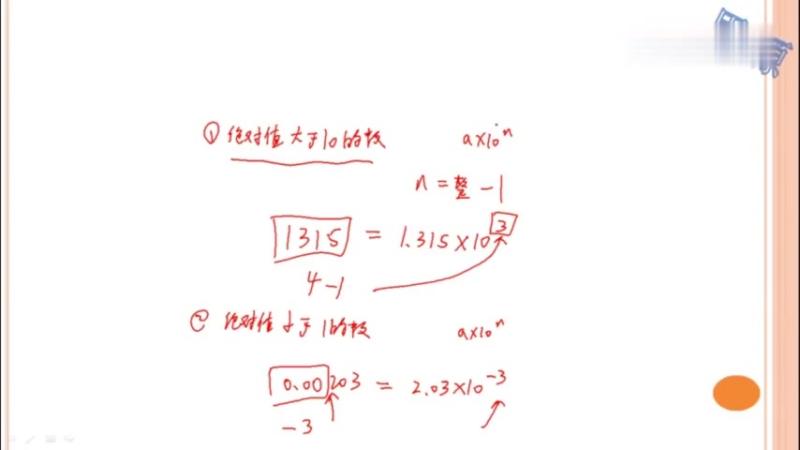 ① 绝对值大于10的数 a×10ⁿ
n = 整 - 1
1315 = 1.315×10³
4-1
② 绝对值小于1的数 a×10ⁿ
0.00203 = 2.03×10⁻³
-3